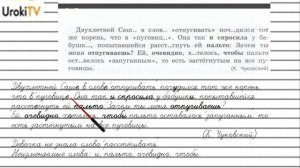 UrokiTV
Двухлетней Саш.. в слов.. «отпугивать» поч..дился тот
же корень, что в «пуговиц..». Она так и спросила у ба-
бушк.., попытавшейся расст..гнуть ей пальто: Зачем ты
меня отпугиваешь? Ей, очевидно, х..телось, чтобы пальто
ост..валось «запуганным», то есть застёгнутым на все пу-
говицы.
(К. Чуковский)
Двухлетней Саше в слове отпугивать почудился тот же корень,
что в пуговице. Она так и спросила у бабушки, попытавшейся
расстегнуть ей пальто: Зачем ты меня отпугиваешь?
Ей, очевидно, хотелось, чтобы пальто оставалось запуганным, то
есть застёгнутым на все пуговицы.
(К. Чуковский)
Девочка не знала слова расстёгивать.
Неизменяемые слова: и, пальто, очевидно, чтобы.